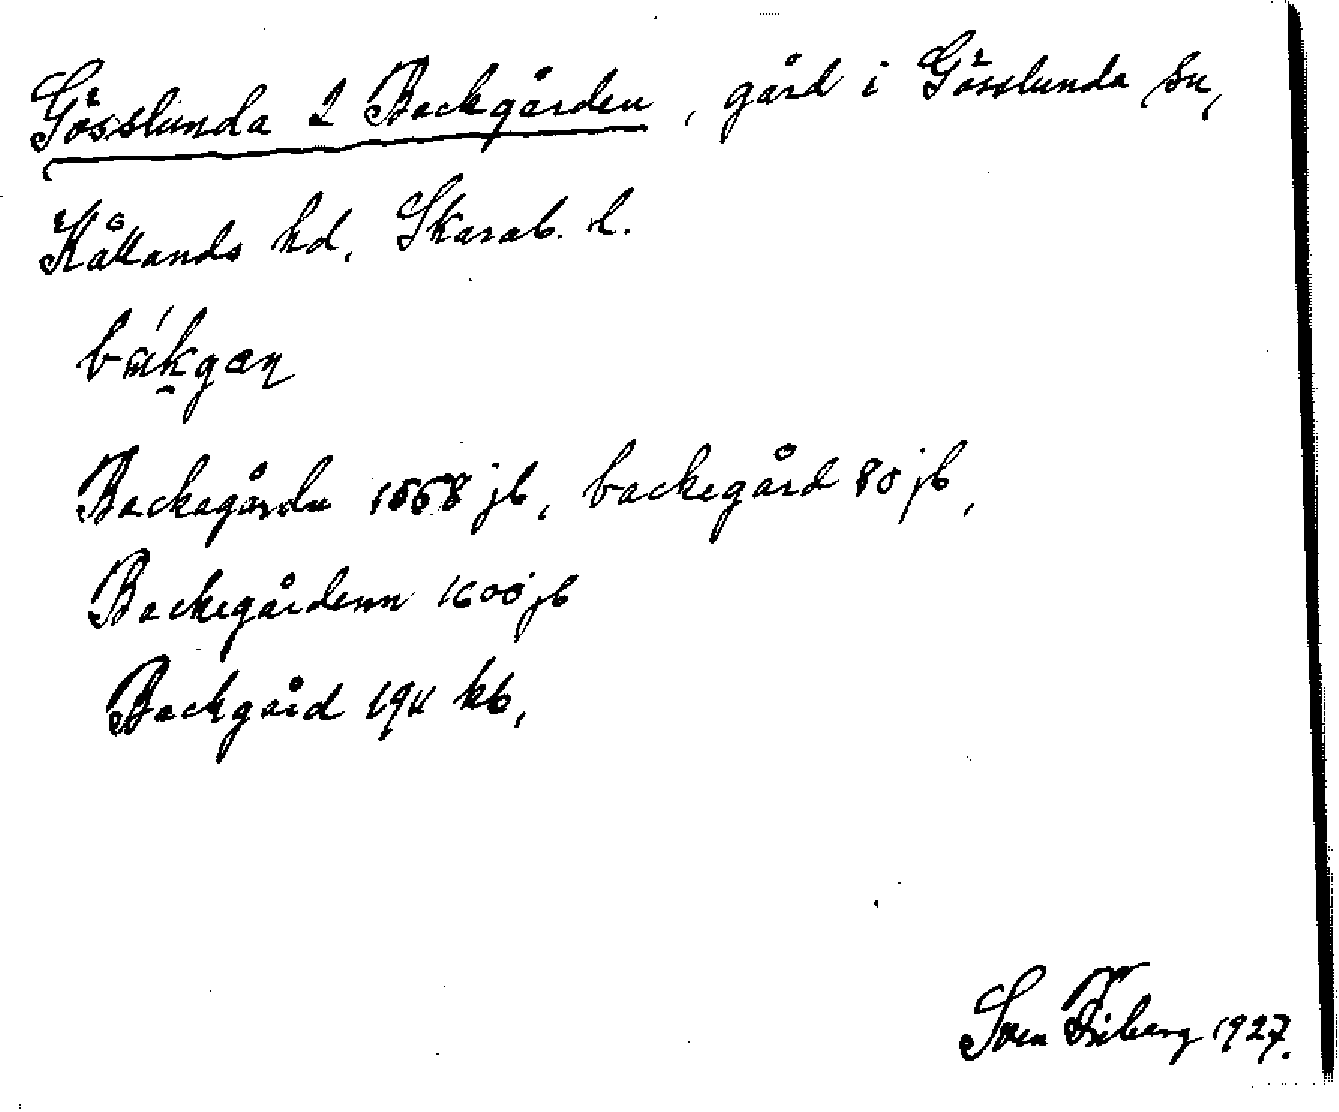 Gösslunda 2 Backgården, gård i Gösslunda sn,
Kållands hd, Skarab. l.
bákgan
Backagårdn 1568 jb, backegård 80 jb,
Backegårdenn 1600 jb
Backgård 1911 kb,
Sven Friberg 1927.